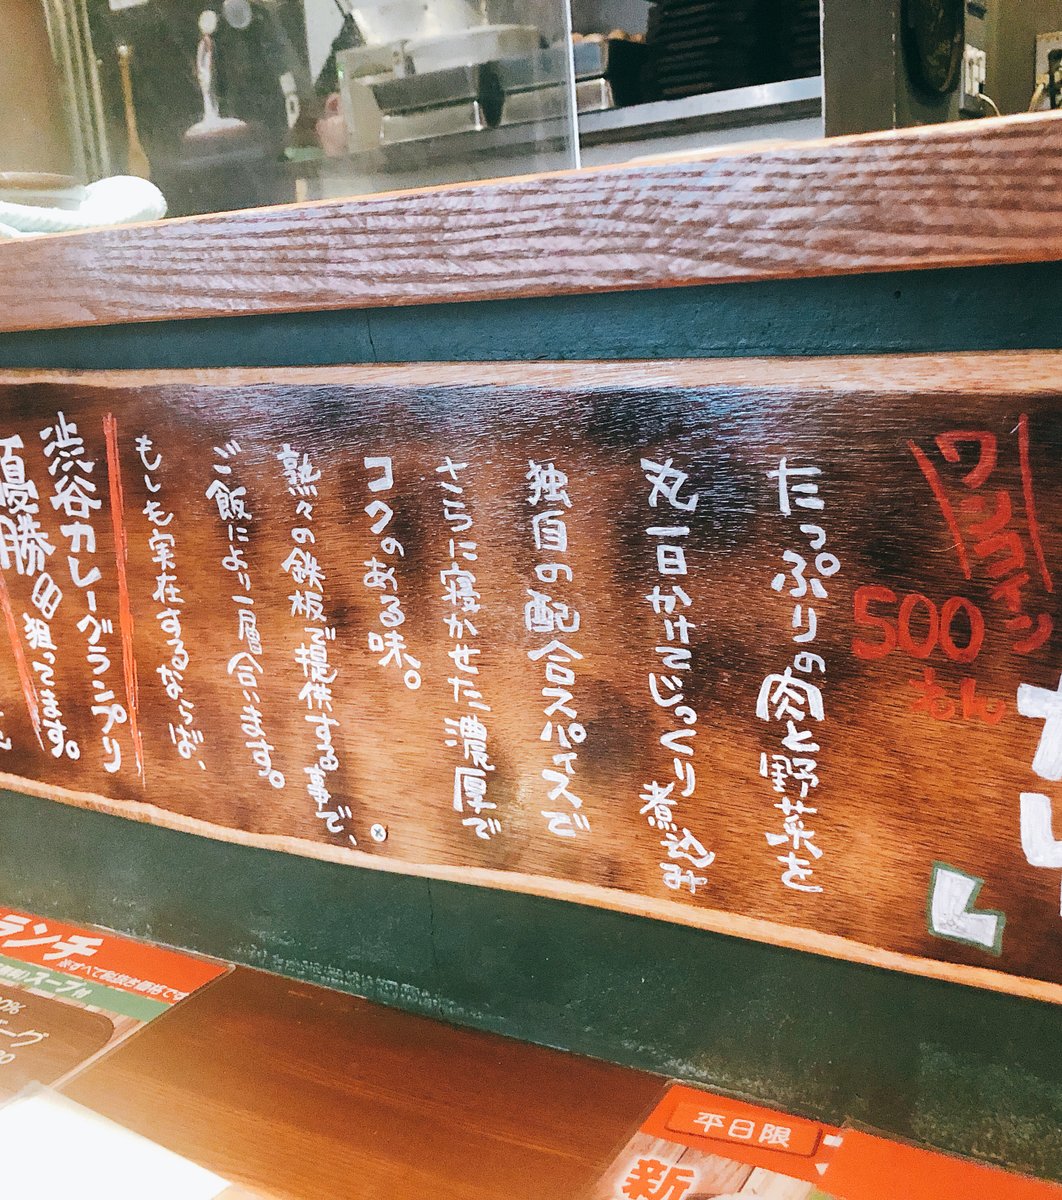 ワンコイン
500
もん
』
たっぷりの肉と野菜を
丸一日かけてじっくり煮込み
独自の配合スパイスで
さらに寝かせた濃厚で
コクのある味。
熱々の鉄板で提供する事で、
ご飯により一層合います。
もしも実在するならば、
渋谷カレーグランプリ
優勝
狙ってます。
ランチ
※すべて税抜き価格です
スープ付
0%
平日限
新